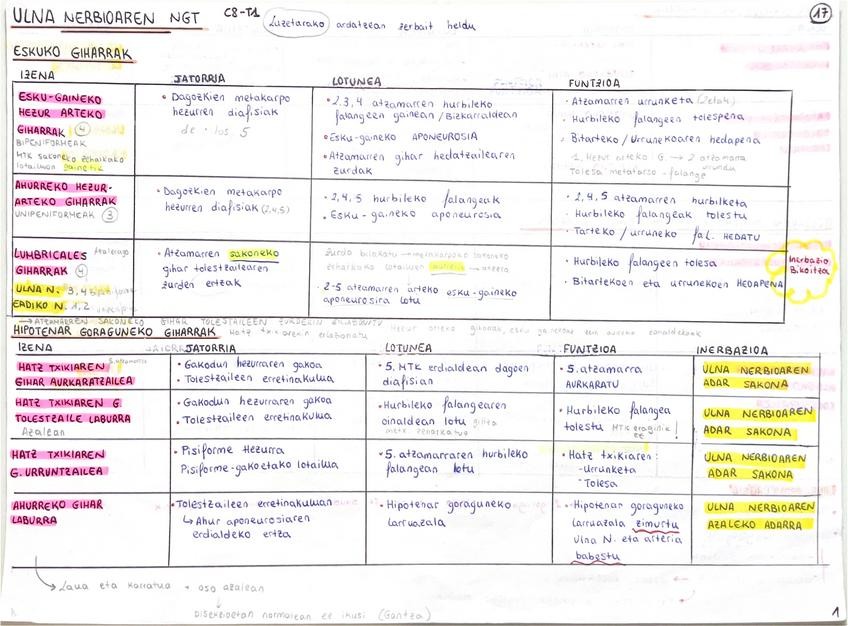 ULNA NERBIOAREN NGT C8-T1 Luzetarako ardatzean zerbait heldu 17
ESKUKO GIHARRAK
IZENA JATORRIA LOTUNEA FUNTZIOA
ESKU-GAINEKO
HEZUR ARTEKO
GIHARRAK 4
BIPENIFORMEAK
MTK sakoneko zeharkako
lotailuen gainetik
• Dagozkien metakarpo
hezurren diafisiak
de los 5
• 2,3,4 atzamarren hurbileko
falangeen gainean/Bizkarraldean
• Esku-gaineko APONEUROSIA
• Atzamarren gihar hedatzailearen
zurdak
• Atzamarren urrunketa (2etak)
• Hurbileko falangeen tolespena
• Bitarteko/Urrunekoaren hedapena
1. Hezur arteko G. → 2 atzamarra
urrundu
Tolesa metatarso-falange
AHURREKO HEZUR-
ARTEKO GIHARRAK
UNIPENIFORMEAK 3
• Dagozkien metakarpo
hezurren diafisiak (2,4,5)
• 2,4,5 hurbileko falangeak
• Esku-gaineko aponeurosia
• 2,4,5 atzamarren hurbilketa
• Hurbileko falangeak tolestu
• Tarteko/urruneko fal. HEDATU
LUMBRICALES
GIHARRAK 4
ULNA N. 3,4
ERDIKO N. 1,2
• Atzamarren sakoneko
gihar tolestzailearen
zurden ertzak
zurda bilakatu → metakarpoko sakoneko
zeharkako lotailuen aurretik → atzera
• 2-5 atzamarren arteko esku-gaineko
aponeurosira lotu
• Hurbileko falangeen tolesa
• Bitartekoen eta urrunekoen HEDAPENA
Inerbazio
Bikoitza
→ ATZAMARREN SAKONEKO GIHAR TOLESTAILEEN ZURDEKIN
HIPOTENAR GORAGUNEKO GIHARRAK Hatz txikiarekin erlazionatu
IZENA JATORRIA LOTUNEA FUNTZIOA INERBAZIOA
HATZ TXIKIAREN
GIHAR AURKARATZAILEA
• Gakodun hezurraren gakoa
• Tolestzaileen erretinakulua
• 5. MTK erdialdean dagoen
diafisian
• 5. atzamarra
AURKARATU
ULNA NERBIOAREN
ADAR SAKONA
HATZ TXIKIAREN G.
TOLESTZAILE LABURRA
Azalean
• Gakodun hezurraren gakoa
• Tolestzaileen erretinakulua
• Hurbileko falangearen
oinaldean lotu
• Hurbileko falangea
tolestu MTK eraginik ez!
ULNA NERBIOAREN
ADAR SAKONA
HATZ TXIKIAREN
G. URRUNTZAILEA
• Pisiforme Hezurra
Pisiforme-gakoetako lotailua
• 5. atzamarraren hurbileko
falangean lotu
• Hatz txikiaren:
-Urrunketa
-Tolesa
ULNA NERBIOAREN
ADAR SAKONA
AHURREKO GIHAR
LABURRA
• Tolestzaileen erretinakuluan
↳ Ahur aponeurosiaren
erdialdeko ertza
• Hipotenar goraguneko
larruazala
• Hipotenar goraguneko
larruazala zimurtu
Ulna N. eta arteria
babestu
ULNA NERBIOAREN
AZALEKO ADARRA
→ Laua eta karratua • oso azalean
↓
DISEKZIOETAN normalean ez ikusi (Gantza)
1